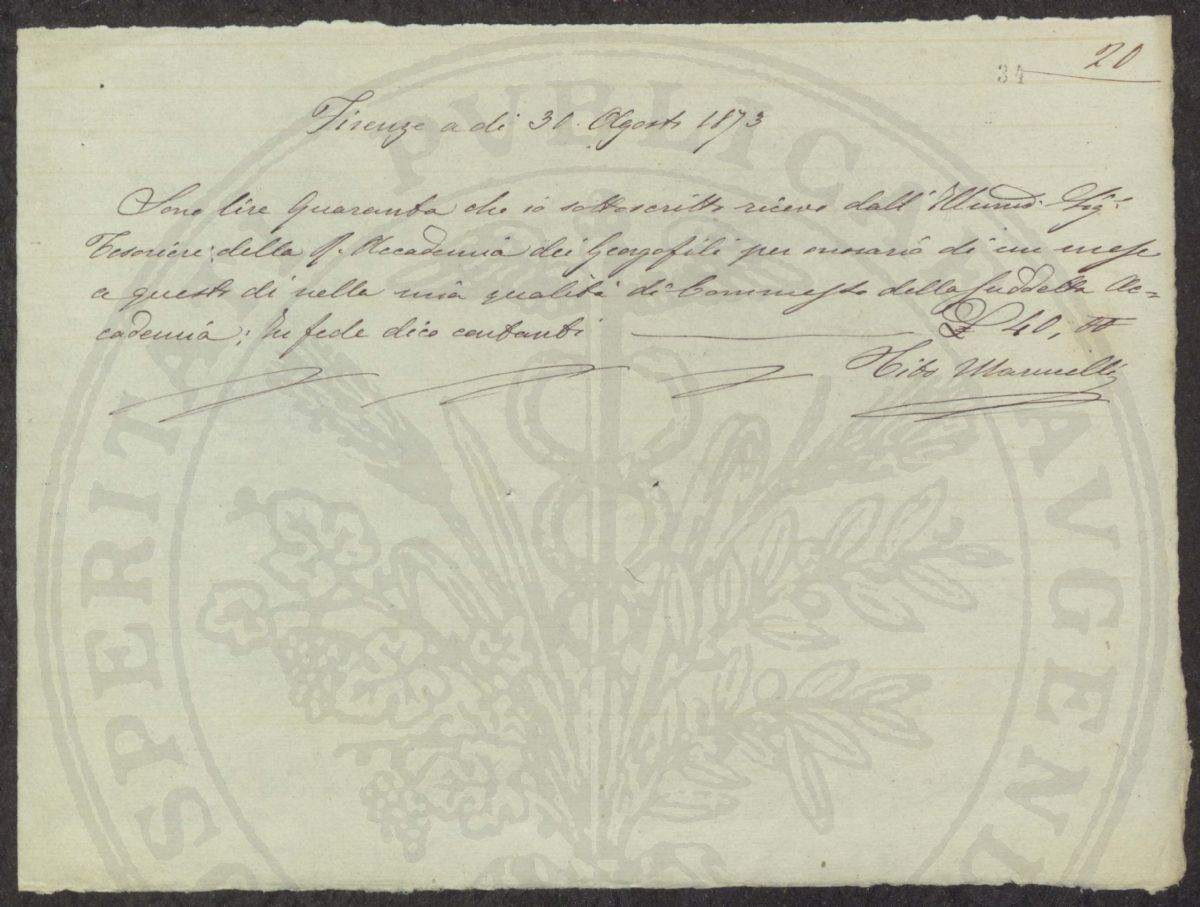 20
34
Firenze a di 31. Agosto 1873
Sono lire Quaranta che io sottoscritto ricevo dall' Illmo. Sig.
Tesoriere della R. Accademia dei Georgofili per onorario di un mese
a questo di nella mia qualità di Commesso della suddetta Ac=
cademia; In fede dico contanti £ 40, 00
Tito Marucelli
PROSPERITATI PVBLICAE AVGENDAE